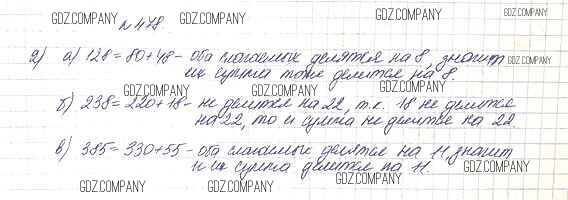 GDZ.COMPANY GDZ.COMPANY GDZ.COMPANY GDZ.COMPANY
№478.
2) а) 128 = 80 + 48 - оба слагаемых делятся на 8, значит GDZ.COMPANY
их сумма тоже делится на 8.
GDZ.COMPANY GDZ.COMPANY GDZ.COMPANY
б) 238 = 220 + 18 - не делится на 22, т.к. 18 не делится
на 22, то и сумма не делится на 22.
GDZ.COMPANY GDZ.COMPANY GDZ.COMPANY
в) 385 = 330 + 55 - оба слагаемых делятся на 11 значит
и их сумма делится на 11. GDZ.COMPANY
GDZ.COMPANY GDZ.COMPANY GDZ.COMPANY